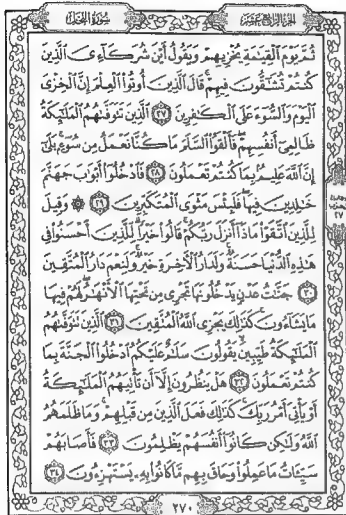 الجزء الرابع عشر
سورة النحل
ثم يوم القيمة يخزيهم ويقول أين شركاءى الذين
كنتم تشقون فيهم قال الذين أوتوا العلم إن الخزى
اليوم والسوء على الكفرين ٢٧ الذين تتوفهم الملئكة
ظالمى أنفسهم فألقوا السلم ما كنا نعمل من سوء بلى
إن الله عليم بما كنتم تعملون ٢٨ فادخلوا أبوب جهنم
خلدين فيها فلبئس مثوى المتكبرين ٢٩ ۞ وقيل
للذين اتقوا ماذا أنزل ربكم قالوا خيرا للذين أحسنوا فى
هذه الدنيا حسنة ولدار الأخرة خير ولنعم دار المتقين
٣٠ جنت عدن يدخلونها تجرى من تحتها الأنهر لهم فيها
ما يشاءون كذلك يجزى الله المتقين ٣١ الذين تتوفهم
الملئكة طيبين يقولون سلم عليكم ادخلوا الجنة بما
كنتم تعملون ٣٢ هل ينظرون إلا أن تأتيهم الملئكة
أو يأتى أمر ربك كذلك فعل الذين من قبلهم وما ظلمهم
الله ولكن كانوا أنفسهم يظلمون ٣٣ فأصابهم
سيئات ما عملوا وحاق بهم ما كانوا به يستهزءون ٣٤
٢٧٠